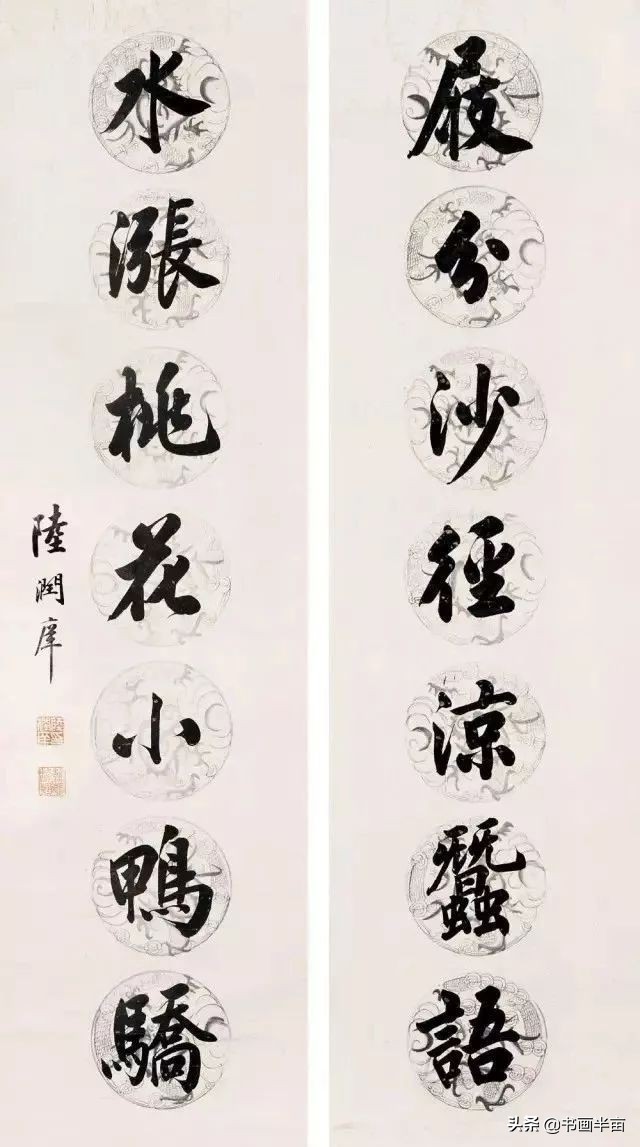 屐分沙徑涼蠶語
水漲桃花小鴨驕
陸潤庠
头条 @书画半亩